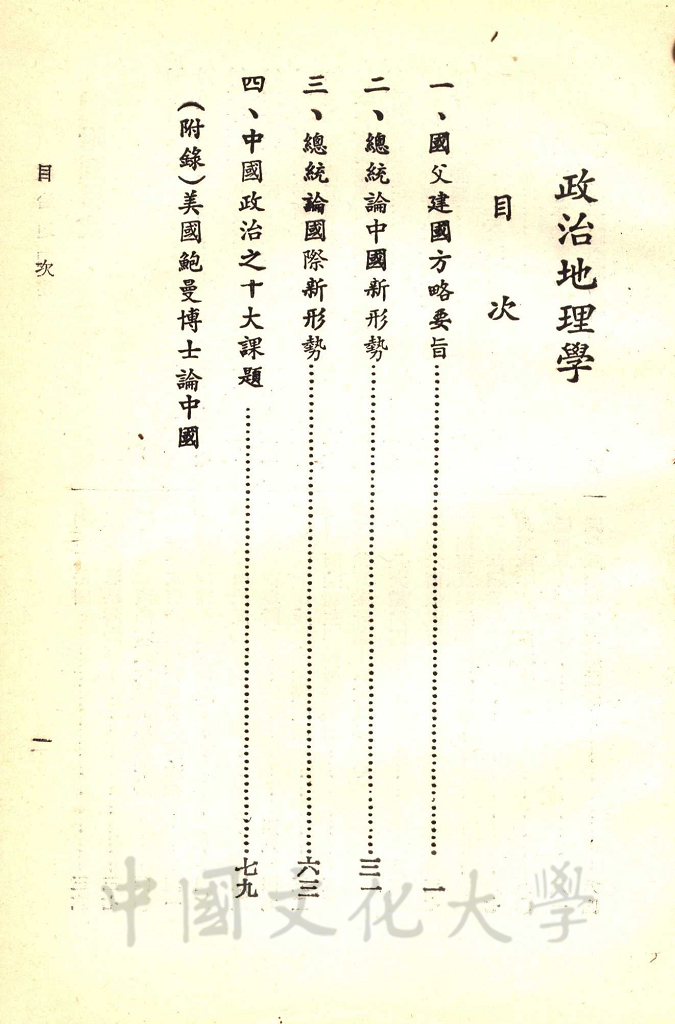 政治地理學
目次
一、國父建國方略要旨……一
二、總統論中國新形勢……三一
三、總統論國際新形勢……六三
四、中國政治之十大課題……七九
（附錄）美國鮑曼博士論中國
目次
一
中國文化大學